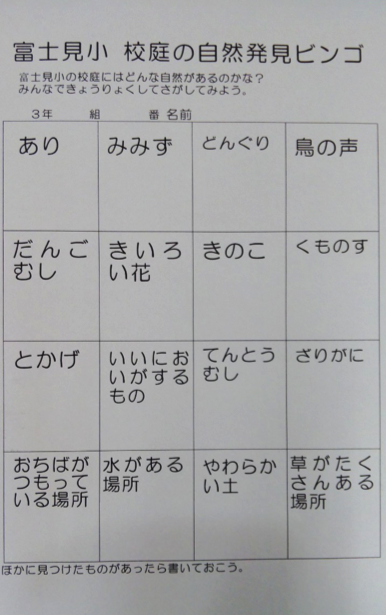 富士見小 校庭の自然発見ビンゴ
富士見小の校庭にはどんな自然があるのかな?
みんなできょうりょくしてさがしてみよう。
3年 組 番 名前
あり
みみず
どんぐり
鳥の声
だんご
むし
きいろ
い花
きのこ
くものす
とかげ
いいにお
いがする
もの
てんとう
むし
ざりがに
おちばが
つもって
いる場所
水がある
場所
やわらか
い土
草がたく
さんある
場所
ほかに見つけたものがあったら書いておこう。